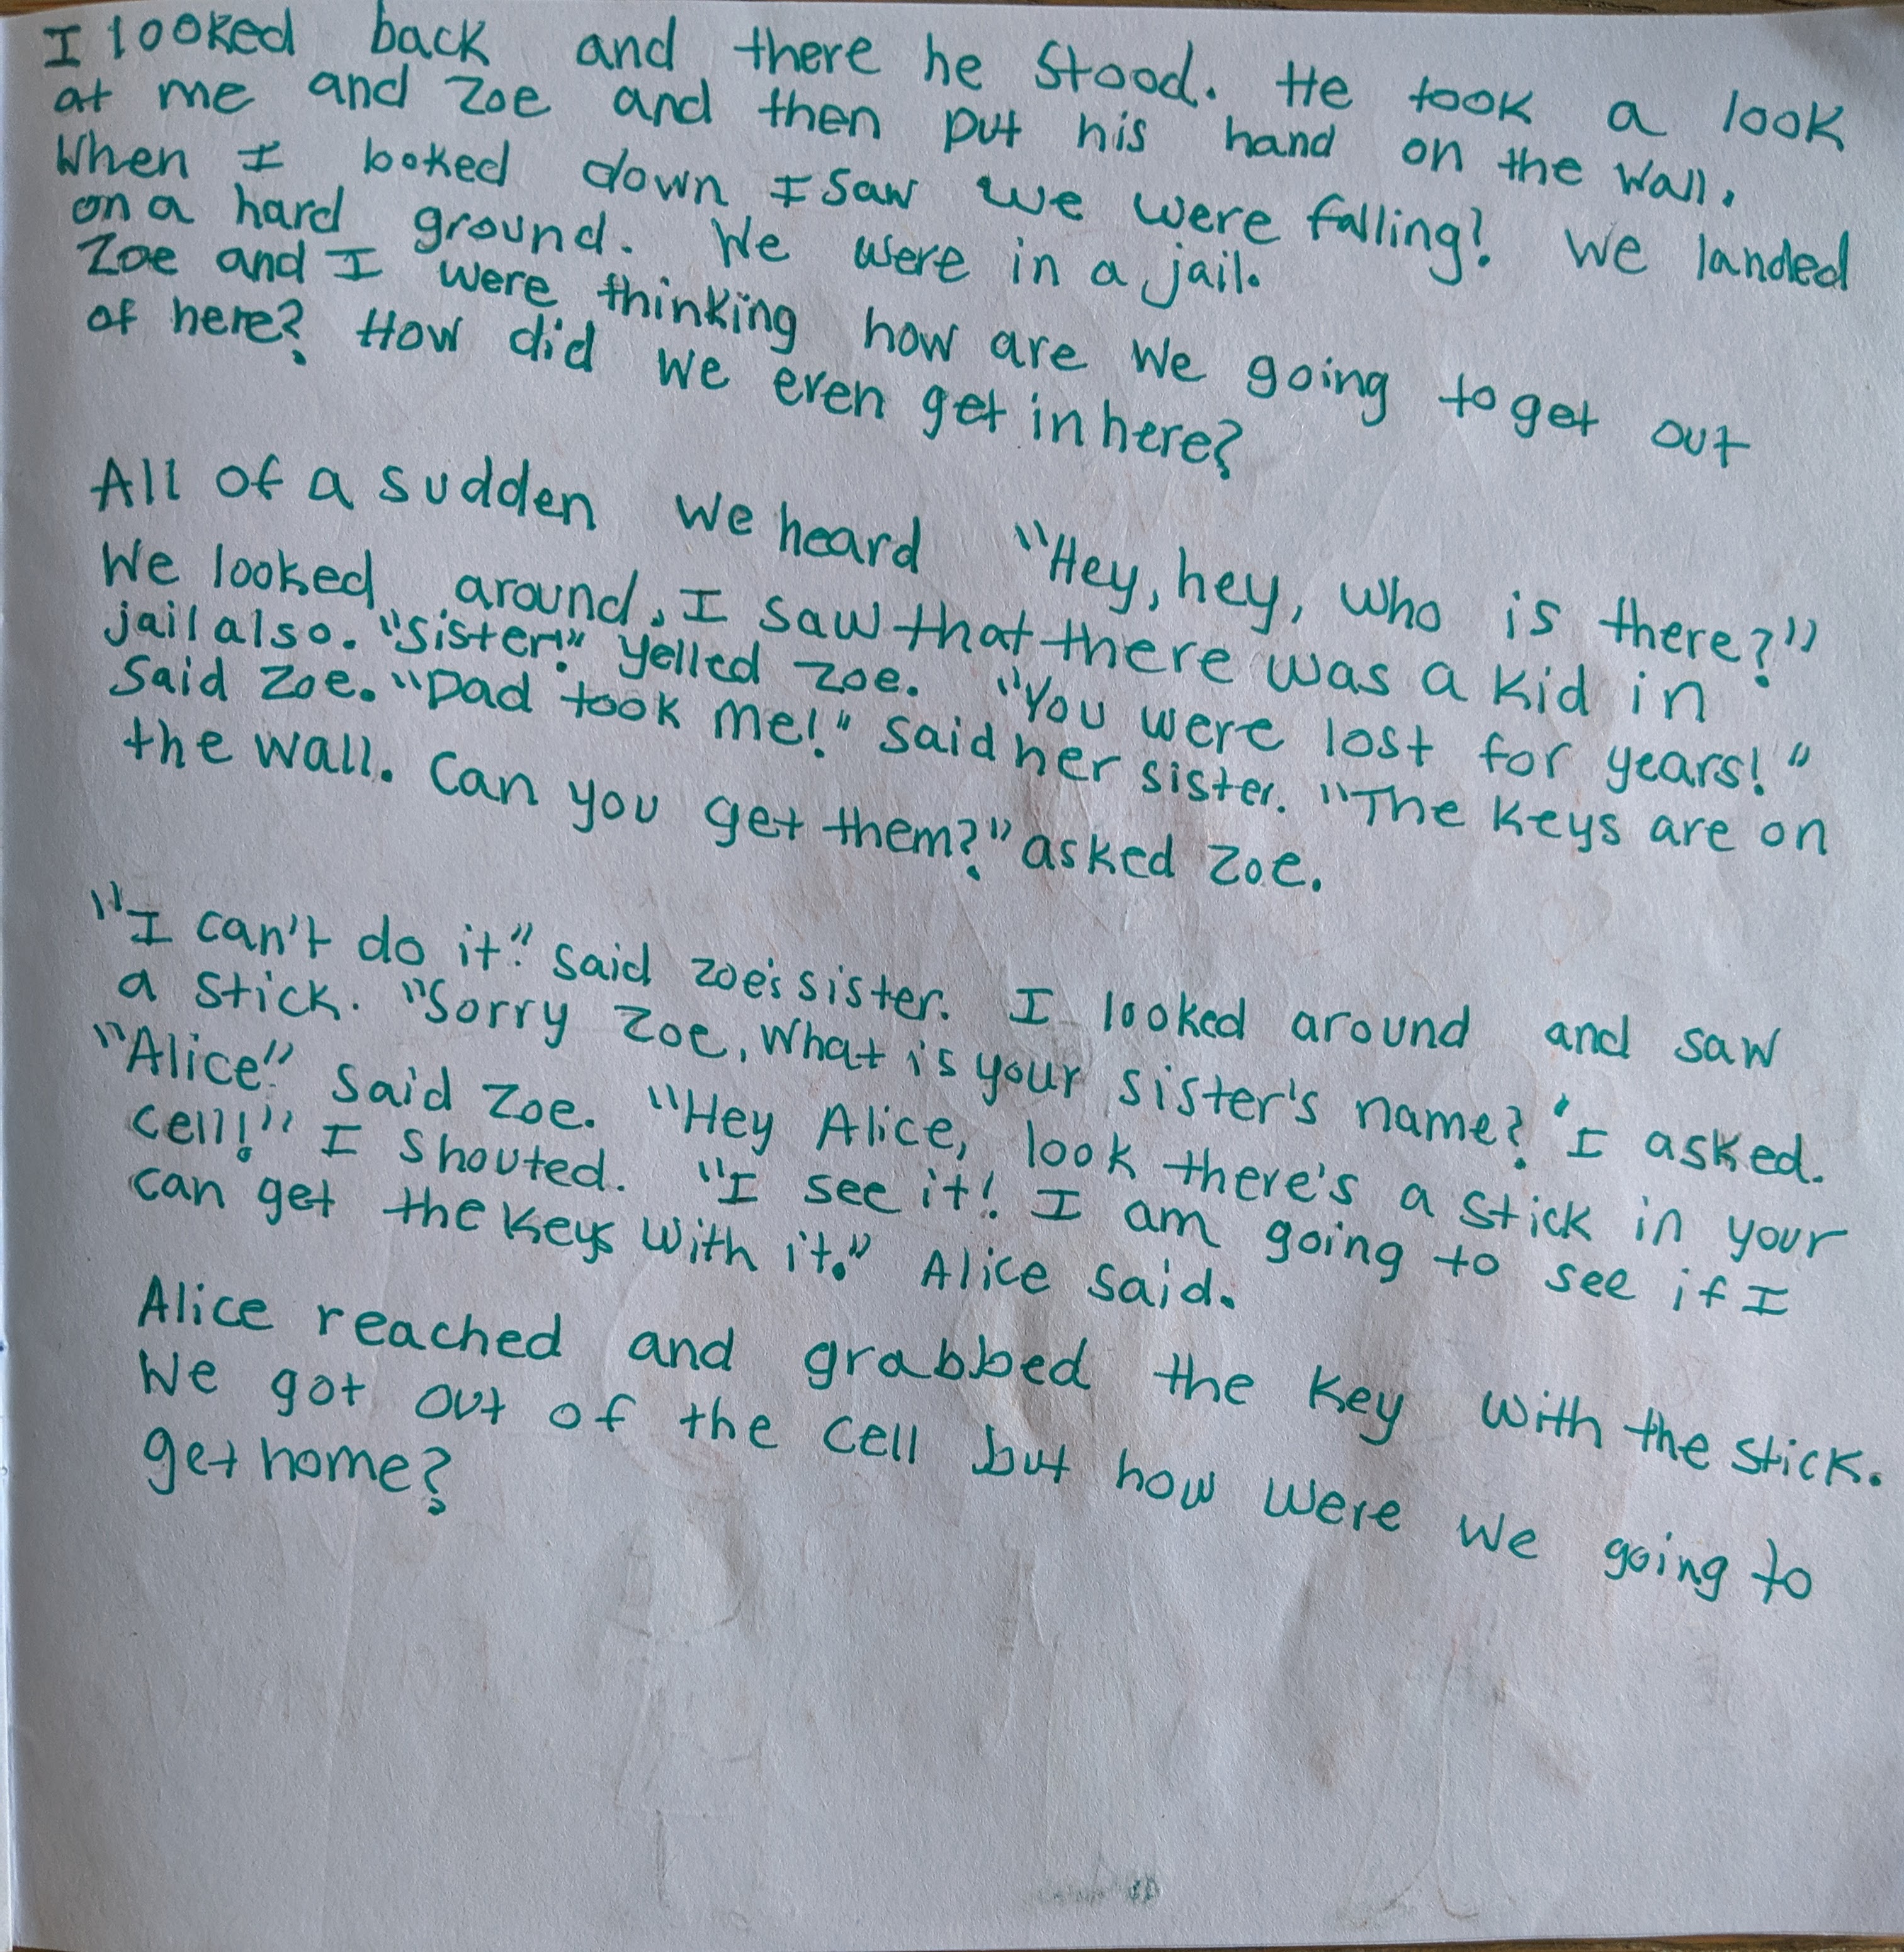 I looked back and there he stood. He took a look
at me and Zoe and then put his hand on the wall.
When I looked down I saw we were falling! We landed
on a hard ground. We were in a jail.
Zoe and I were thinking how are we going to get out
of here? How did we even get in here?
All of a sudden we heard "Hey, hey, who is there?"
We looked around, I saw that there was a kid in
jail also. "Sister!" yelled Zoe. "You were lost for years!"
Said Zoe. "Dad took me!" said her sister. "The keys are on
the wall. Can you get them?" asked Zoe.
"I can't do it." said Zoe's sister. I looked around and saw
a stick. "Sorry Zoe, what is your sister's name?' I asked.
"Alice." said Zoe. "Hey Alice, look there's a stick in your
cell!" I shouted. "I see it! I am going to see if I
can get the keys with it." Alice said.
Alice reached and grabbed the key with the stick.
We got out of the cell but how were we going to
get home?